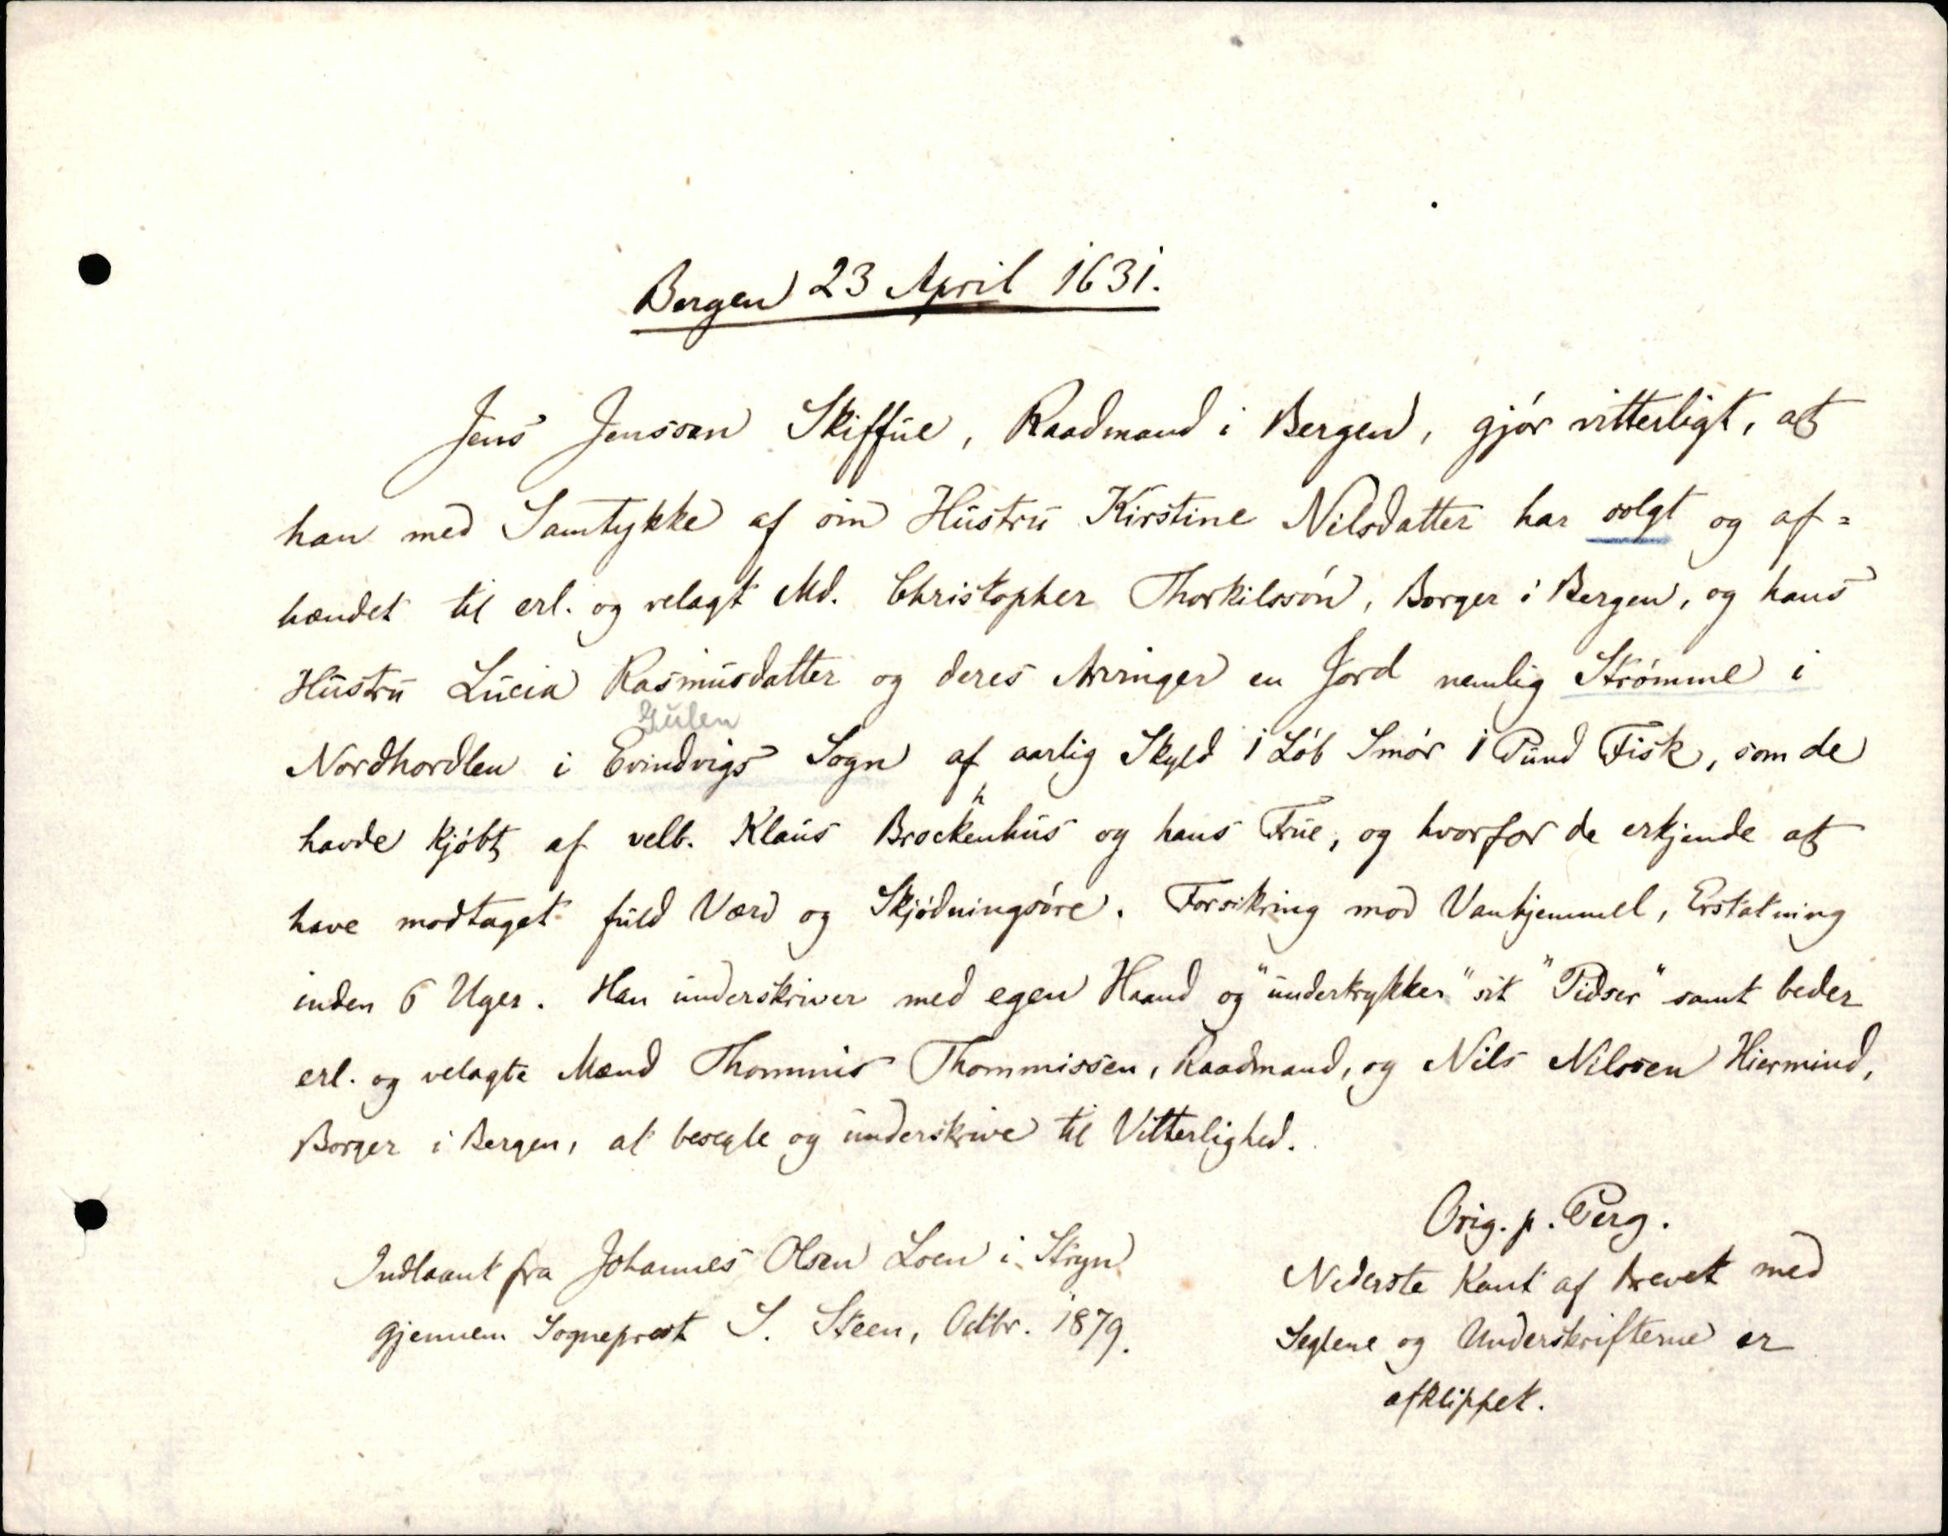 Bergen 23 April 1631.
Jens Jenssøn Skiffue, Raadmand i Bergen, gjør vitterligt, at
han med Samtykke af sin Hustru Kirstine Nilsdatter har solgt og af=
hændet til erl. og velagt Md. Christopher Thorkilssøn, Borger i Bergen, og hans
Hustru Lucia Rasmusdatter og deres Arvinger en Jord nemlig Strømme i
Gulen
Nordhordlen i Evindvigs Sogn af aarlig Skyld 1 Løb Smør 1 Pund Fisk, som de
h
havde kjøbt af velb. Klaus Brockenhus og hans Frue, og hvorfor de erkjende at
have modtaget fuld Værd og Skjødningsøre. Forsikring mod Vanhjemmel, Erstatning
inden 6 Uger. Han underskriver med egen Haand og "undertrykker" sit "Pidser" samt beder
erl. og velagte Mænd Thommis Thommissen, Raadmand, og Nils Nilssen Hiermind,
Borger i Bergen, at besegle og underskrive til Vitterlighed.
Orig. p. Perg.
Nederste Kant af Brevet med
Seglene og Underskrifterne er
afklippet.
Indlaant fra Johannes Olsen Loen i Stryn
gjennem Sogneprest S. Steen, Octbr. 1879.